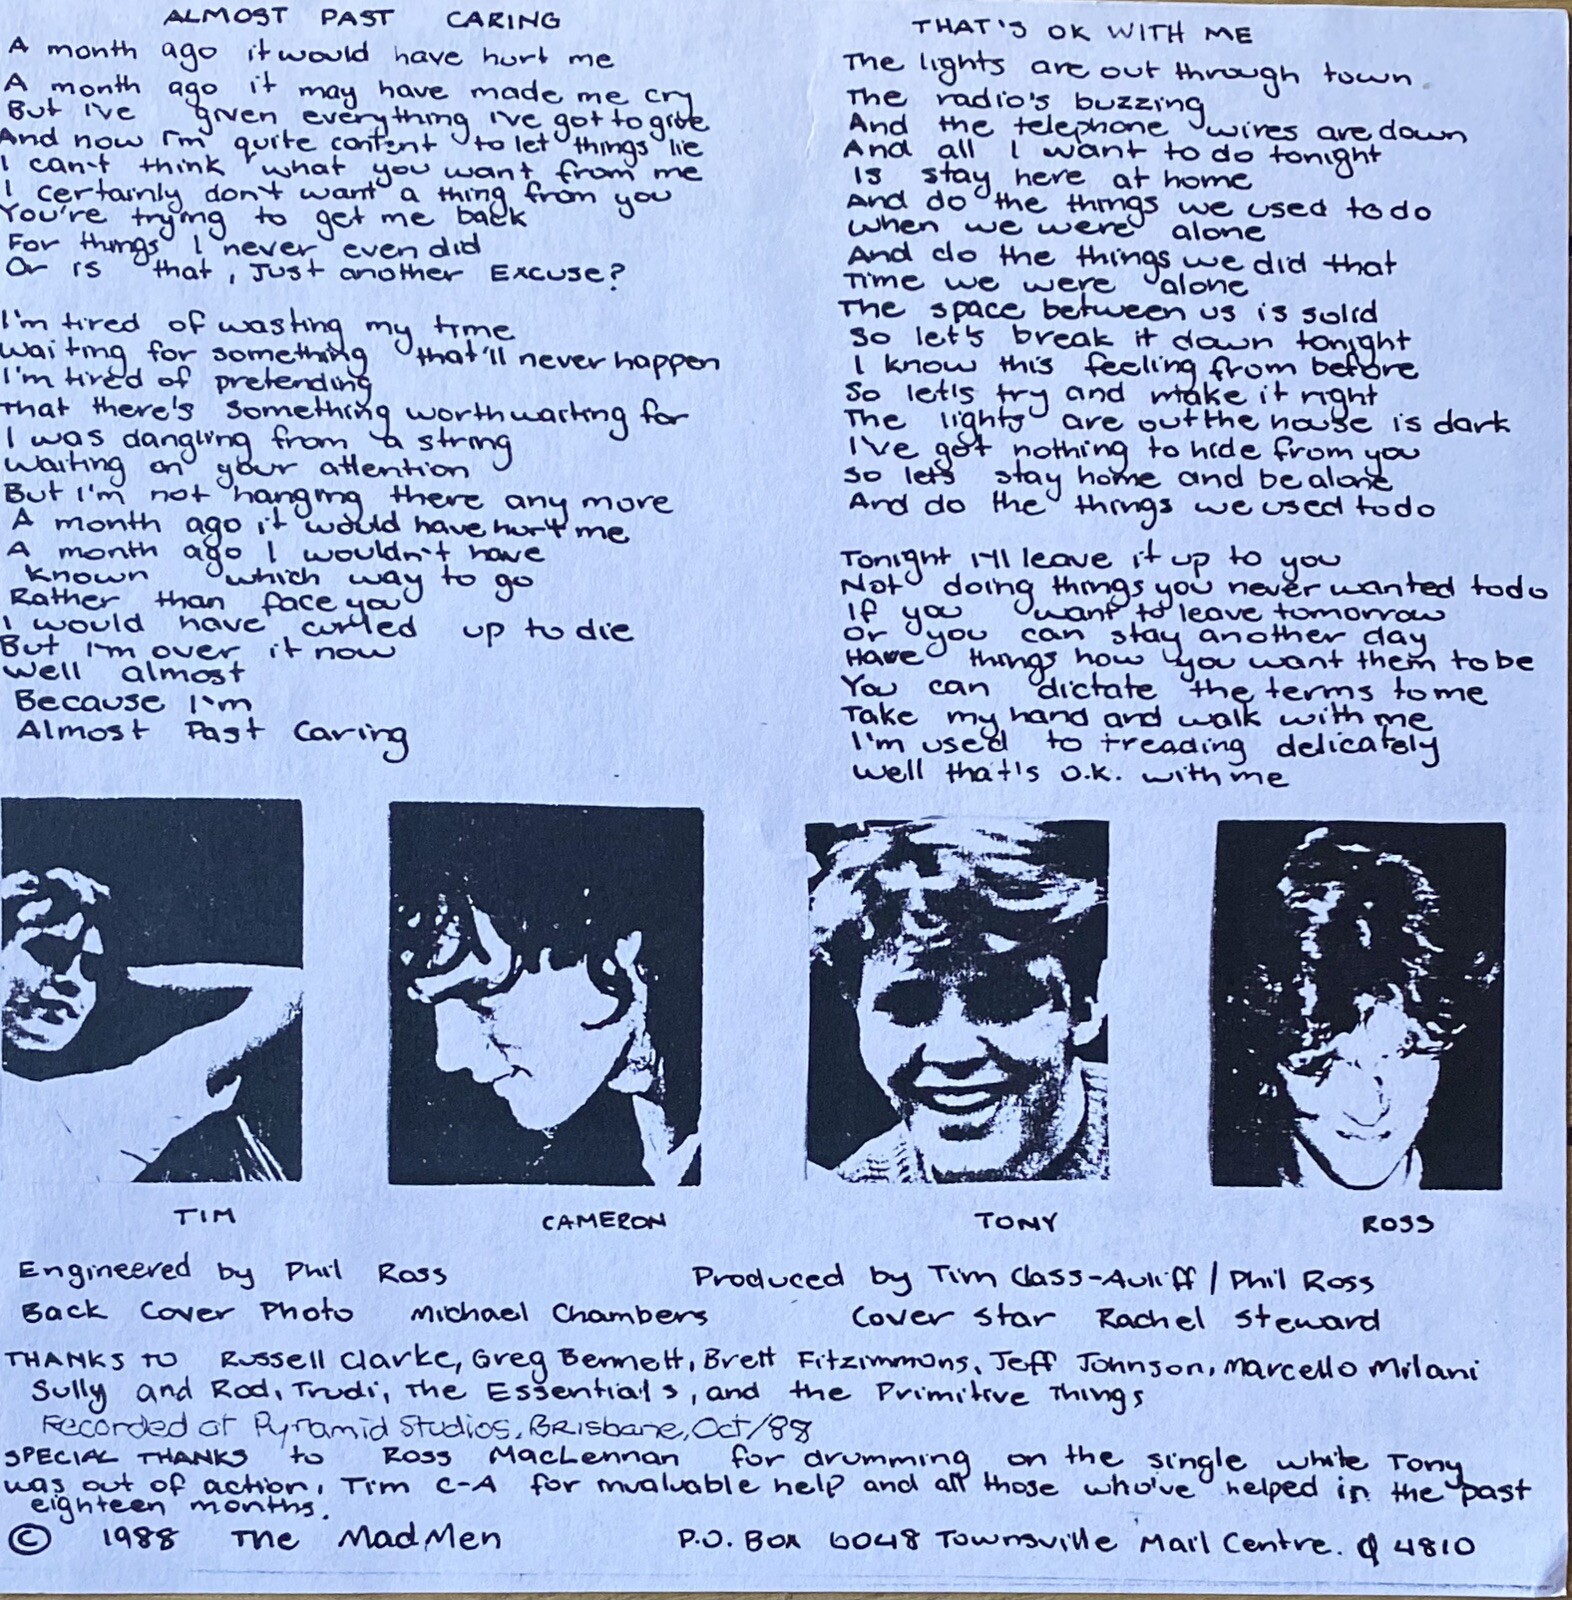 ALMOST PAST CARING
A month ago it would have hurt me
A month ago it may have made me cry
But I've given everything I've got to give
And now I'm quite content to let things lie
I can't think what you want from me
I certainly don't want a thing from you
You're trying to get me back
For things I never even did
Or is that, Just another Excuse?
I'm tired of wasting my time
Waiting for something that'll never happen
I'm tired of pretending
That there's something worth waiting for
I was dangling from a string
Waiting on your attention
But I'm not hanging there any more
A month ago it would have hurt me
A month ago I wouldn't have
known which way to go
Rather than face you
I would have curled up to die
But I'm over it now
Well almost
Because I'm
Almost Past Caring
THAT'S OK WITH ME
The lights are out through town
The radio's buzzing
And the telephone wires are down
And all I want to do tonight
Is stay here at home
And do the things we used to do
When we were alone
And do the things we did that
Time we were alone
The space between us is solid
So let's break it down tonight
I know this feeling from before
So let's try and make it right
The lights are out the house is dark
I've got nothing to hide from you
So lets stay home and be alone
And do the things we used to do
Tonight I'll leave it up to you
Not doing things you never wanted to do
If you want to leave tomorrow
Or you can stay another day
Have things how you want them to be
You can dictate the terms to me
Take my hand and walk with me
I'm used to treading delicately
Well that's O.K. with me
TIM CAMERON TONY ROSS
Engineered by Phil Ross Produced by Tim Class-Auliff / Phil Ross
Back Cover Photo Michael Chambers Cover Star Rachel Steward
THANKS TO Russell Clarke, Greg Bennett, Brett Fitzimmons, Jeff Johnson, Marcello Milani
Sully and Rod, Trudi, The Essentials, and the Primitive Things
Recorded at Pyramid Studios, Brisbane, Oct/88
SPECIAL THANKS to Ross MacLennan for drumming on the single while Tony
was out of action, Tim C-A for invaluable help and all those who've helped in the past
eighteen months.
© 1988 The MadMen P.O. Box 6048 Townsville Mail Centre. Q 4810